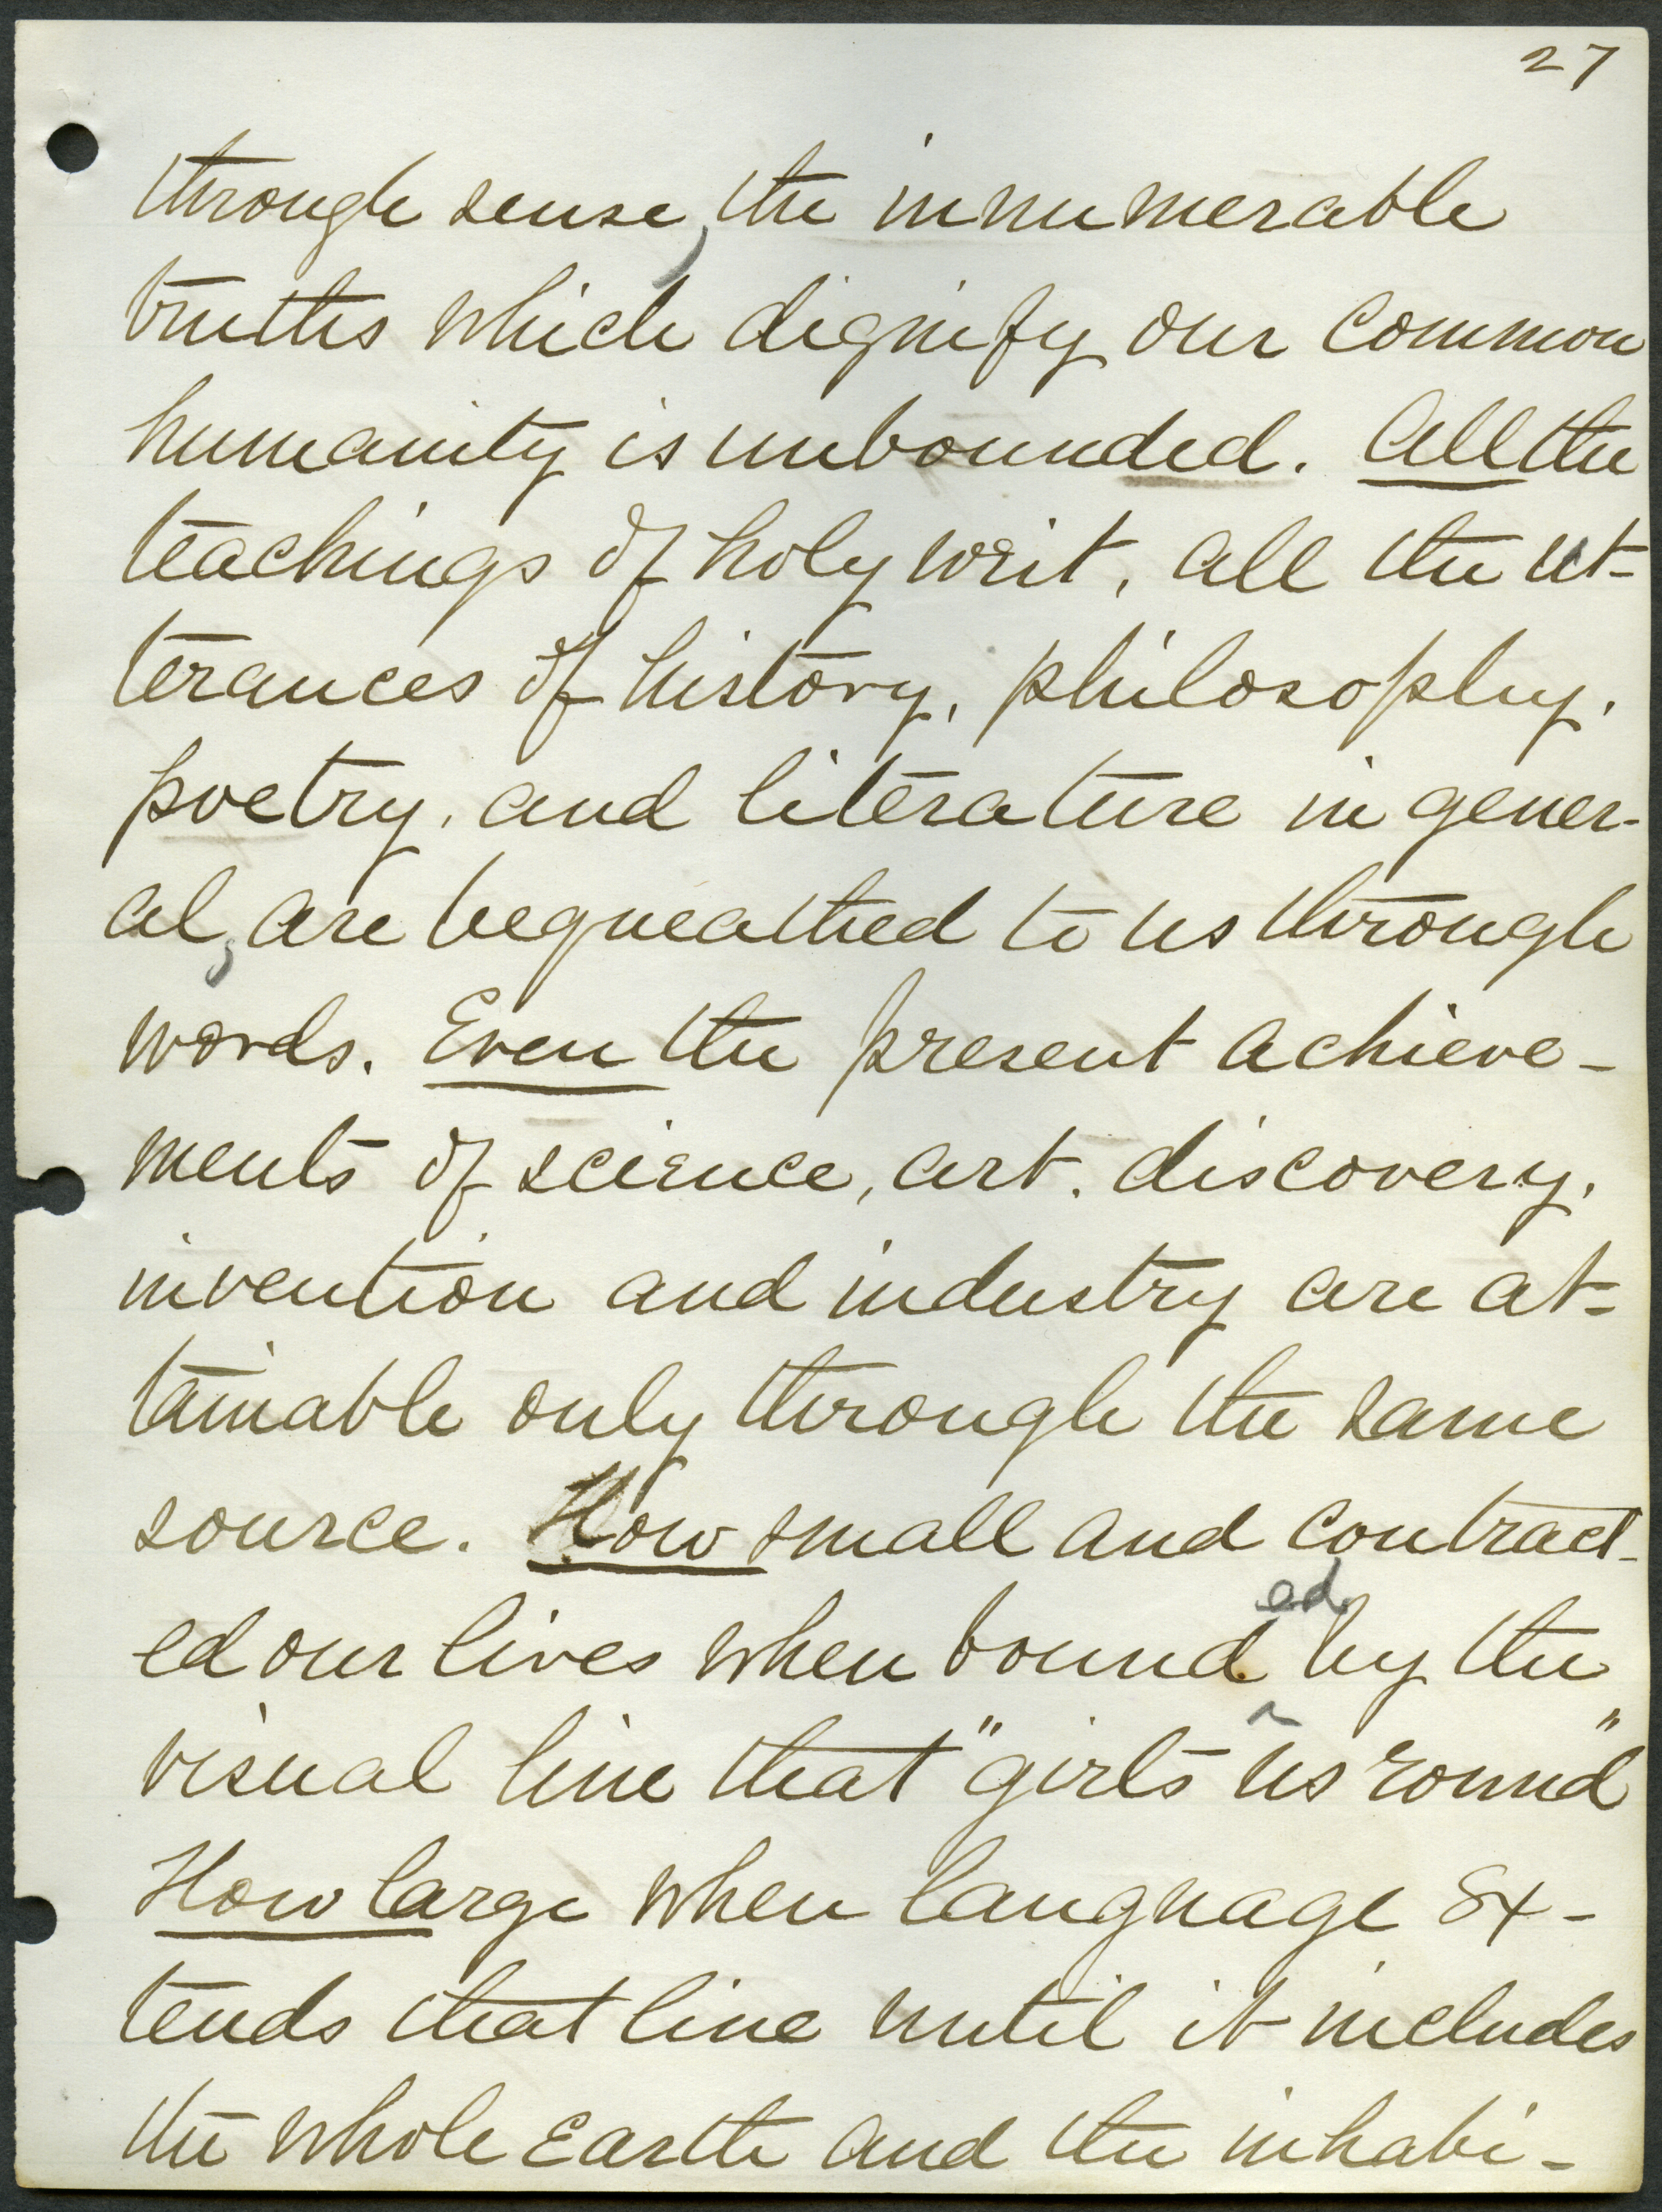 27
through sense, the innumerable
truths which dignify our common
humanity is unbounded. All the
teachings of holy writ, all the ut-
terances of history, philosophy,
poetry, and literature in gener-
al, are bequeathed to us through
words. Even the present achieve-
ments of science, art, discovery,
invention and industry are at-
tainable only through the same
source. How small and contract-
ed our lives when bounded by the
visual line that "girts us round"
How large when language ex-
tends that line until it includes
the whole Earth and the inhabi-